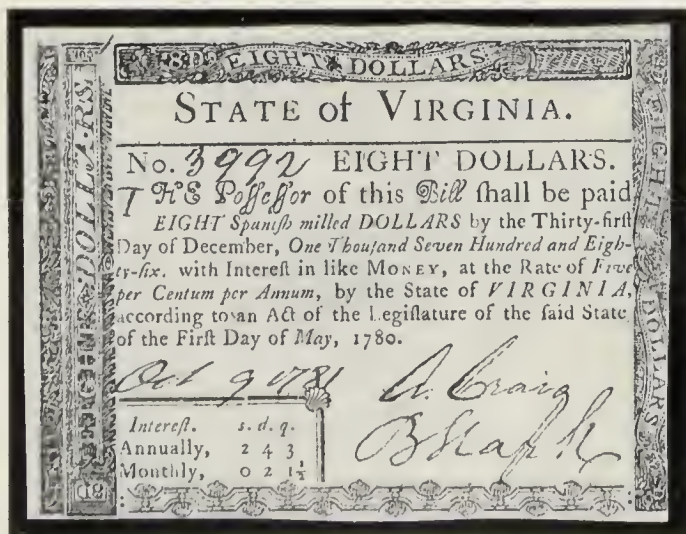 EIGHT DOLLARS
STATE of VIRGINIA.
No. 3992 EIGHT DOLLARS.
THE Poſſeſſor of this Bill ſhall be paid
EIGHT Spaniſh milled DOLLARS by the Thirty-firſt
Day of December, One Thouſand Seven Hundred and Eigh-
ty-ſix. with Intereſt in like MONEY, at the Rate of Five
per Centum per Annum, by the State of VIRGINIA,
according to an Act of the Legiſlature of the ſaid State
of the Firſt Day of May, 1780.
Oct 9 1781 A. Craig
Intereſt. s. d. q.
Annually, 2 4 3
Monthly, 0 2 1½
EIGHT DOLLARS
EIGHT DOLLARS